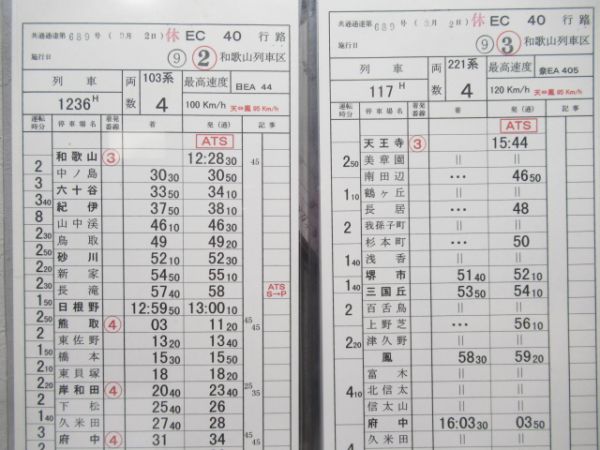 共通通達第689号(9月2日) 休 EC 40 行路
施行日 ⑨ ② 和歌山列車区
列車 両数 103系 4 最高速度 日EA 44
1236H 100 Km/h 天⇔鳳 95 Km/h
運転時分 停車場名 着発番線 着 発(通) 記事
ATS
和歌山 ③ 12:28 30 45
2 中ノ島 30 30 30 50
3 六十谷 33 50 34 10
3 40 紀伊 37 50 38 10
8 山中渓 46 10 46 30
2 30 鳥取 49 49 20
2 50 砂川 52 10 52 30
2 20 新家 54 50 55 10
2 30 長滝 57 40 58 ATS S→P
1 50 日根野 12:59 50 13:00 10
2 50 熊取 ④ 03 11 20 45 45
2 東佐野 13 20 13 40
1 50 橋本 15 30 15 50
2 10 東貝塚 18 18 20
2 20 岸和田 ④ 20 40 23 40 25 35
2 下松 25 40 26
1 40 久米田 27 40 28
3 府中 ④ 31 34 45 45
共通通達第689号(9月2日) 休 EC 40 行路
施行日 ⑨ ③ 和歌山列車区
列車 両数 221系 4 最高速度 奈EA 405
117H 120 Km/h 天⇔鳳 95 Km/h
運転時分 停車場名 着発番線 着 発(通) 記事
ATS
天王寺 ③ 15:44
美章園 || ||
2 50 南田辺 … 46 50
鶴ヶ丘 || ||
1 10 長居 … 48
我孫子町 || ||
2 杉本町 … 50
浅香 || ||
1 40 堺市 51 40 52 10
1 40 三国丘 53 50 54 10
百舌鳥 || ||
2 上野芝 … 56 10
津久野 || ||
2 20 鳳 58 30 59 20
富木 || ||
北信太 || ||
4 10 信太山 || ||
府中 16:03 30 03 50
久米田 || ||